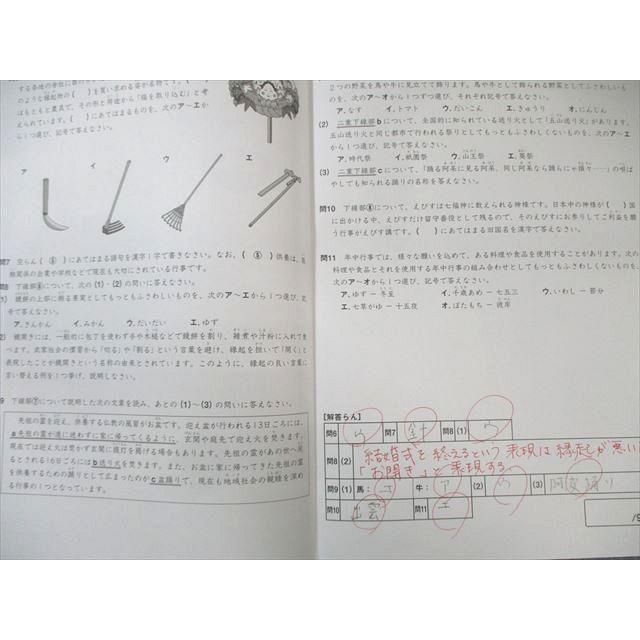 する各地の寺社に群が
の（　）を買い求める姿が名物です。
のような縁起物の（　）にあてはまるものを
はもともと農具で、その形と用途から「福を取り込む」と考
えられています。（　）にあてはまるものを、次のア～エか
ら1つ選び、記号で答えなさい。
ア　イ　ウ　エ
問7　空らん（　⑤　）にあてはまる語句を漢字1字で書きなさい。なお、（　⑤　）供養は、
関係の企業や学校などで現在も大切にされている行事です。
問8　下線部⑥について、次の(1)・(2)の問いに答えなさい。
鏡餅の上に飾る果実としてもっともふさわしいものを、次のア～エから1つ選び、記
号で答えなさい。
ア．きんかん　イ．みかん　ウ．だいだい　エ．ゆず
鏡開きには、一般的に包丁を使わず手や木槌などで鏡餅を割り、雑煮や汁粉に入れて食
べます。武家社会の慣習から「切る」や「割る」という言葉を避け、縁起を担いで「開く」と
表現したことが鏡開きという名称の由来とされています。このように、縁起の良い言葉に
言い替える例を1つ挙げ、説明しなさい。
9　下線部⑦について説明した次の文章を読み、あとの(1)～(3)の問いに答えなさい。
先祖の霊を迎え、供養する仏教の風習がお盆です。迎え盆が行われる13日ごろには、
a先祖の霊が道に迷わずに家に帰ってくるように、玄関や庭先で迎え火を焚きます。
現在では迎え火は焚かず玄関に提灯を掲げる場合もあります。先祖の霊があの世へ戻
るとされる16日ごろにはb送り火を焚きます。また、お盆に家に帰ってきた先祖の霊
を供養するための踊りとして広まったのがc盆踊りで、現在も地域社会の親睦を深め
る行事の1つとなっています。
2つの野菜を馬や牛に見立てて飾ります。馬や牛として飾られる野菜としてふさわしい
ものを、次のア～オから1つずつ選び、それぞれ記号で答えなさい。
ア．なす　イ．トマト　ウ．だいこん　エ．きゅうり　オ．にんじん
(2)　二重下線部bについて、全国的に知られている送り火として「五山送り火」があります。
五山送り火と同じ都市で行われる祭りとしてもっともふさわしくないものを、次のア～エ
から1つ選び、記号で答えなさい。
ア．時代祭　イ．祇園祭　ウ．山王祭　エ．葵祭
(3)　二重下線部cについて、「踊る阿呆に見る阿呆、同じ阿呆なら踊らにゃ損々……」の唄ば
やしでも知られる踊りの名称を答えなさい。
問10　下線部⑧について、えびすは七福神に数えられる神様です。日本中の神様が（　）国
に出かける中、えびすだけ留守番役として残るので、そのえびすにお参りしてご利益を願
う行事がえびす講です。（　）にあてはまる旧国名を漢字で答えなさい。
問11　年中行事では、様々な願いを込めて、ある料理や食品を使用することがあります。次の
料理や食品とそれを使用する年中行事の組み合わせとしてもっともふさわしくないものを、
次のア～オから1つ選び、記号で答えなさい。
ア．ゆず － 冬至　イ．千歳あめ － 七五三　ウ．いわし － 節分
エ．七草がゆ － 十五夜　オ．ぼたもち － 彼岸
[解答らん]
問6　ウ　問7　針　問8　(1)　ウ
問8　(2)　結婚式を終えるという表現は縁起が悪い
「お開き」と表現する
問9　(1)　馬：エ　牛：ア　(2)　ウ　(3)　阿波踊り
問10　出雲　問11　エ